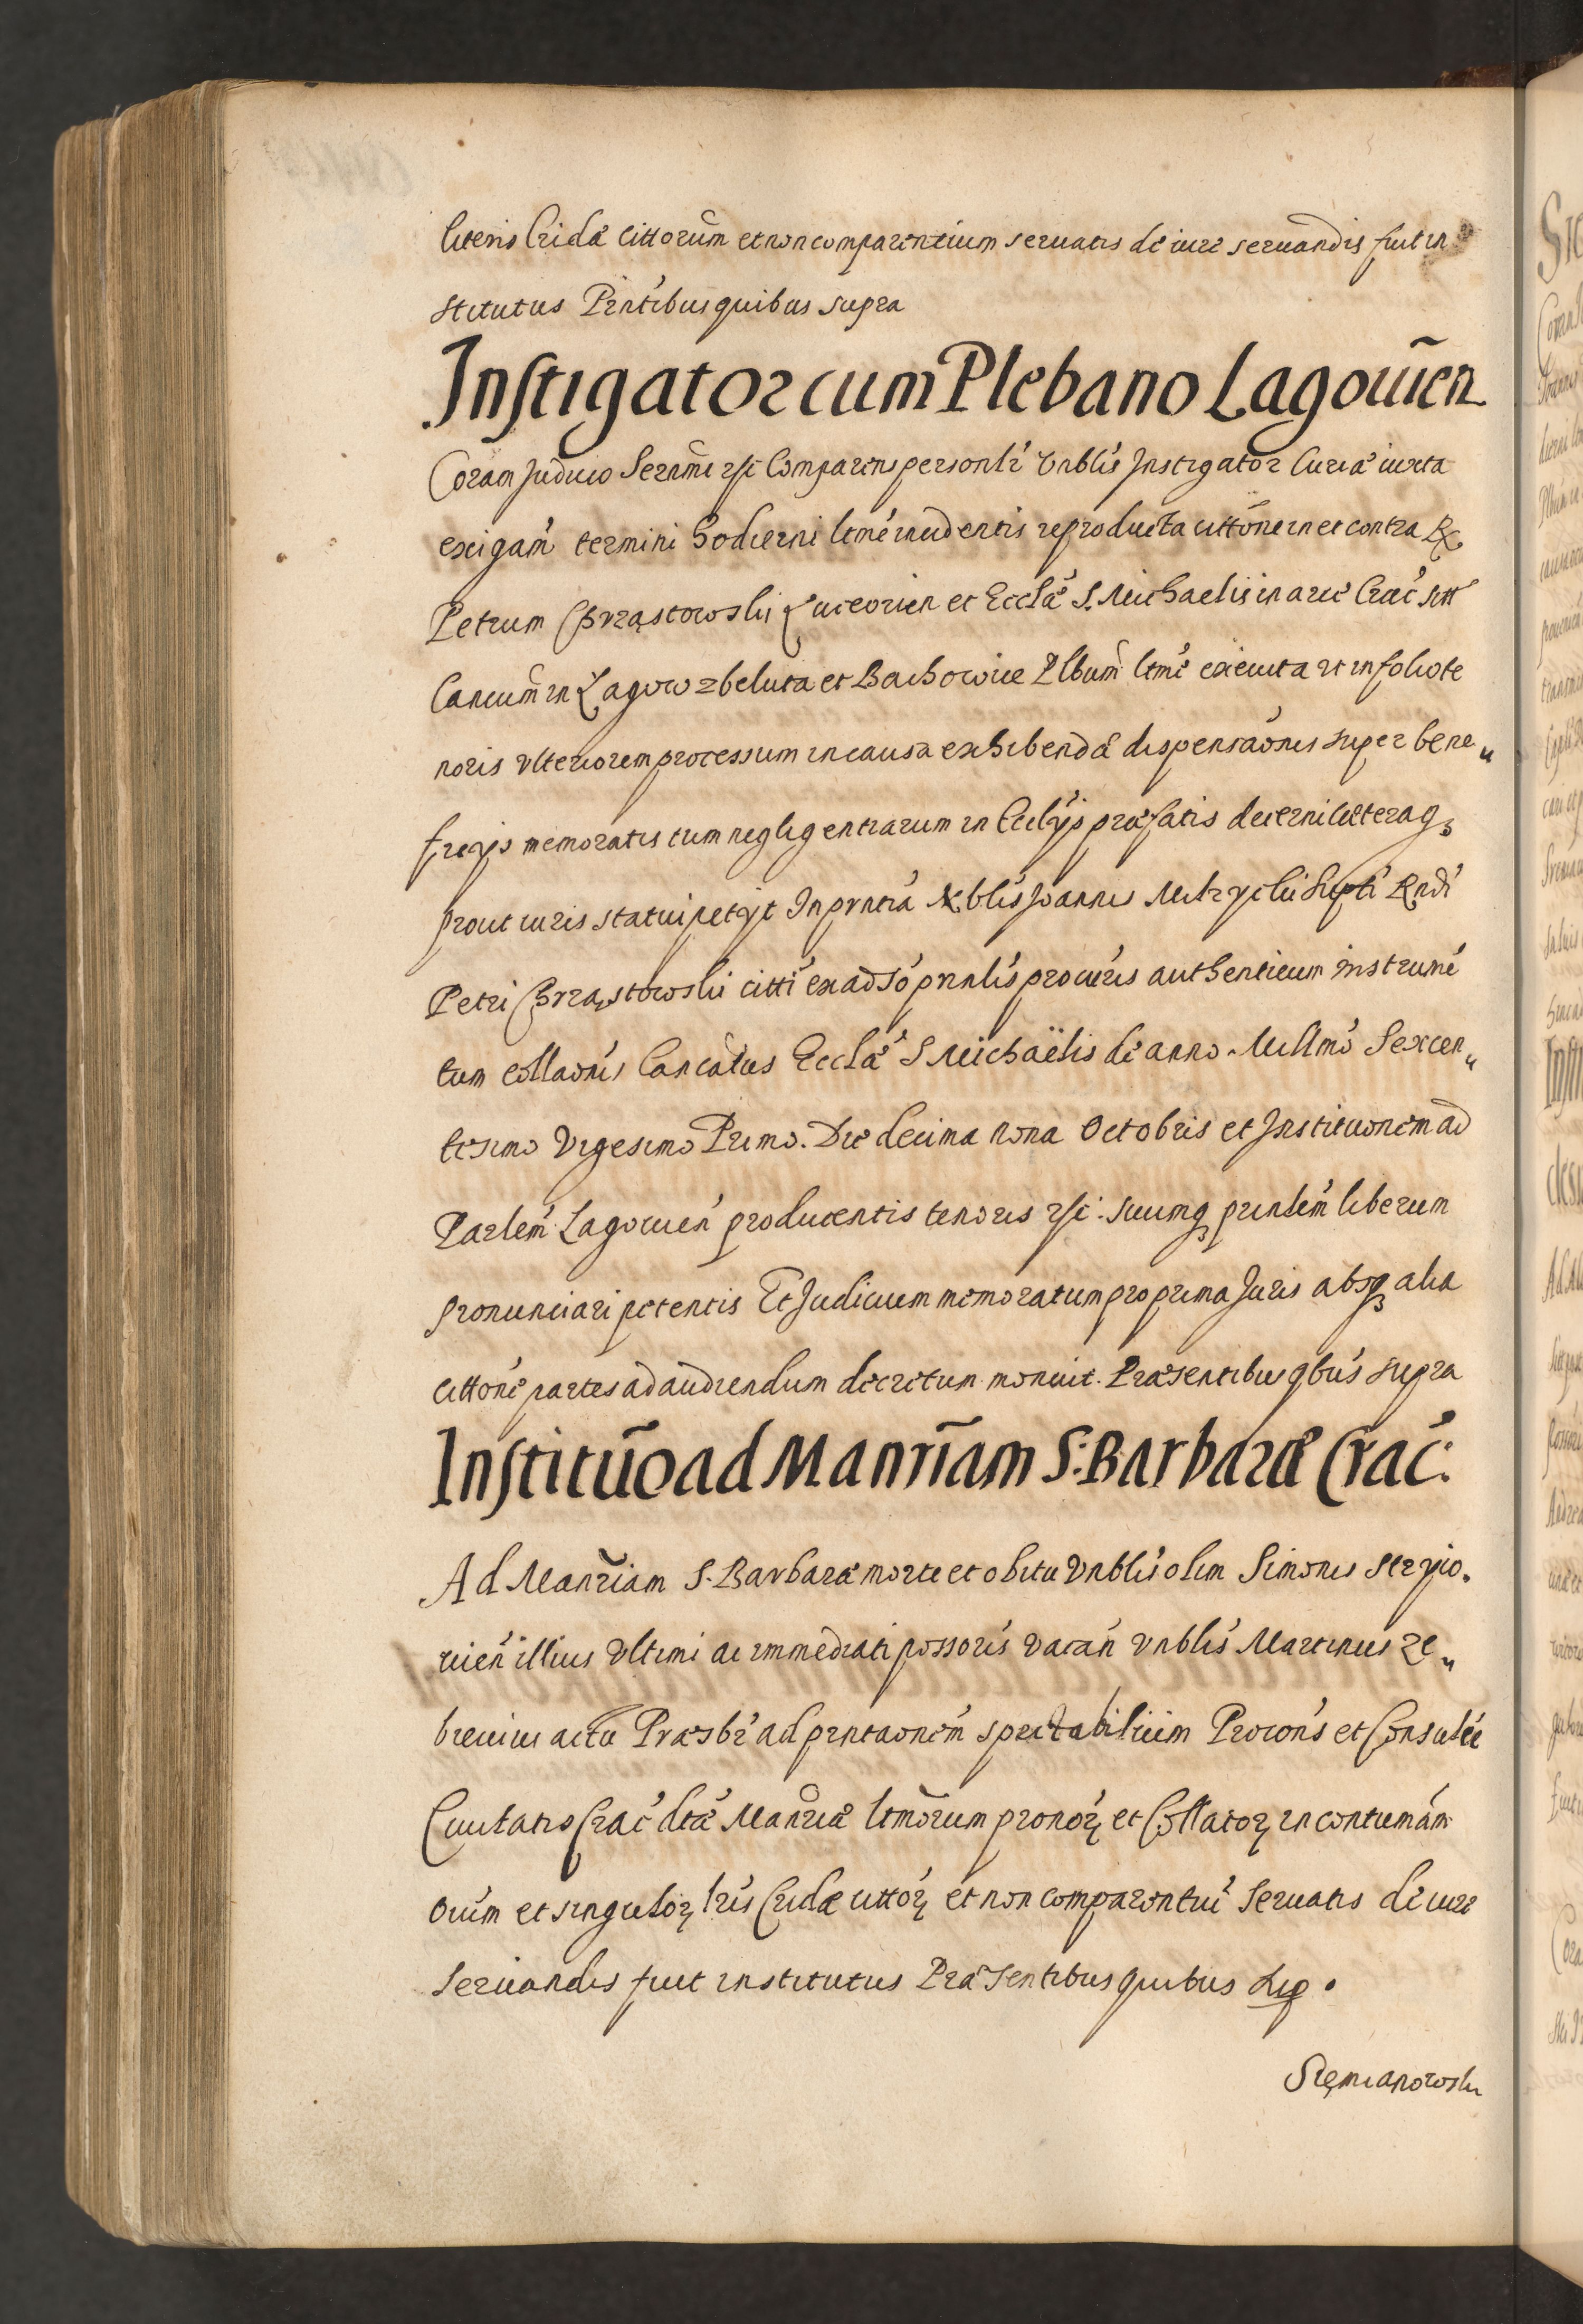 literis Cridae cittorum et non comparentium seruatis de iure seruandis fuit in
stitutus Pentibus quibus supra
Instigator cum Plebano Lagouien
Coram Judicio Serenmi rsc Comparens personlr Vnblis Instigator Curiae iuxta
exigam termini hodierni ltme incidentis reproducta cittone in et contra R
Petrum Brząstowski Luceorien et Ecclae S. Michaelis in arce Crac
Cancum in Lagow zbeluta et Bachowice Plbum ltme executa et in folio te
noris vlteriorem processum in causa exhibendae dispensaonis super bene„
ficijs memoratis tum negligentiarum in Ecclijs praefatis decerni caeteraq3
prout iuris statui petijt In prntia Nblis Joannis
Petri Brząstowski citti ex adso prnlis procuris authenticum instrume
tum collaonis Cancatus Ecclae S Michaëlis de anno Millmo Sexcen„
tesimo Vigesimo Primo. Die decima nona Octobris et Instituonem ad
Parlem Lagouien producentis tenoris rsc: suumq3 prinlem liberum
pronunciari petentis Et Judicium memoratum pro prima Juris absq3 alia
cittone partes ad audiendum decretum monuit. Praesentibus qbus supra
Instituo ad Manriam S: Barbarae Crac:
Ad Manriam S. Barbarae morte et obitu Vnblis olim Simonis
uien illius Vltimi ac immediati possoris vacan vnblis Martinus Ze„
breuius actu Praesbr ad prntaonem spectabilium Procons et Consulu
Ciuitatis Crac dtae Manriae ltmorum pronorꝝ et Collatorꝝ in contumam
Ouim et singulorꝝ lris Cridae cittorꝝ et non comparentiu Seruatis de iure
Seruandis fuit institutus Praesentibus quibus sup.
Siemianowski